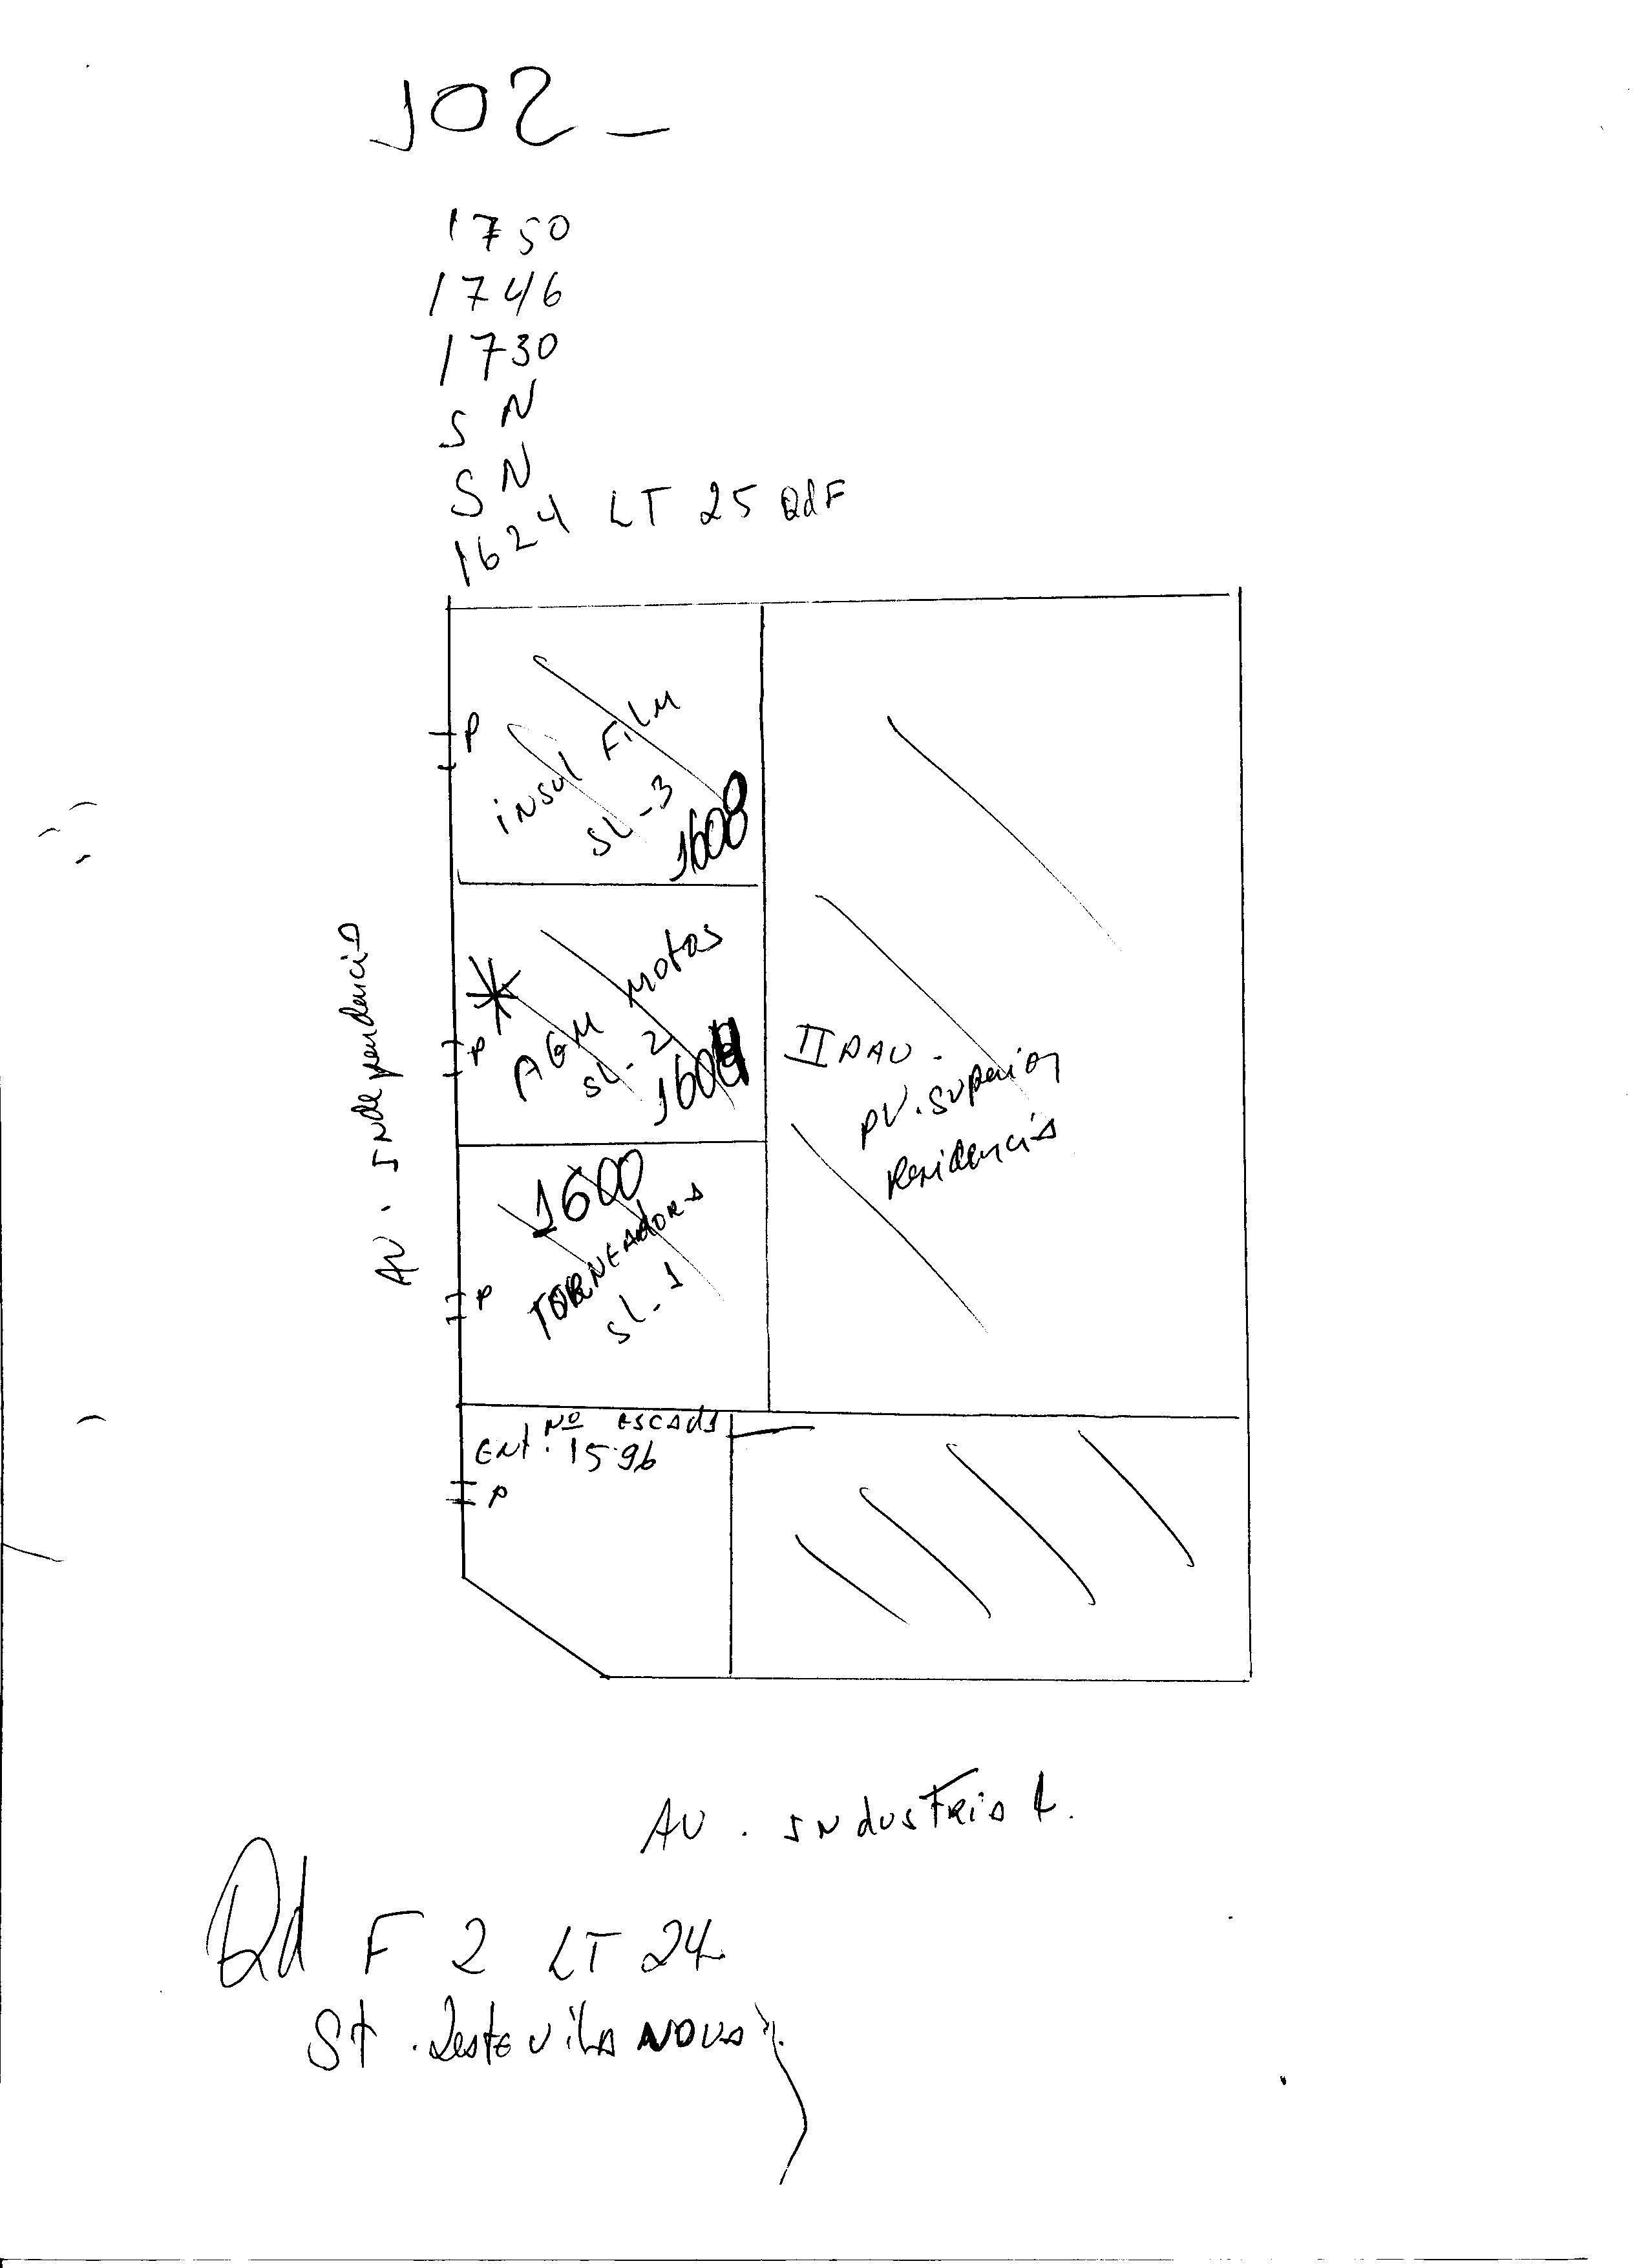 102 -
1750
1746
1730
S N
S N
1624 LT 25 Qd F
P
insul Film
SL - 3
1608
AV. Independencia
P
AGM motos
SL - 2
1604
II PAV.
PV. superior
Residencia
1600
TORNEADORA
SL - 1
P
Nº escada
Ent. 1596
P
AV. Industrial.
Qd F 2 LT 24
St. Leste Vila Nova